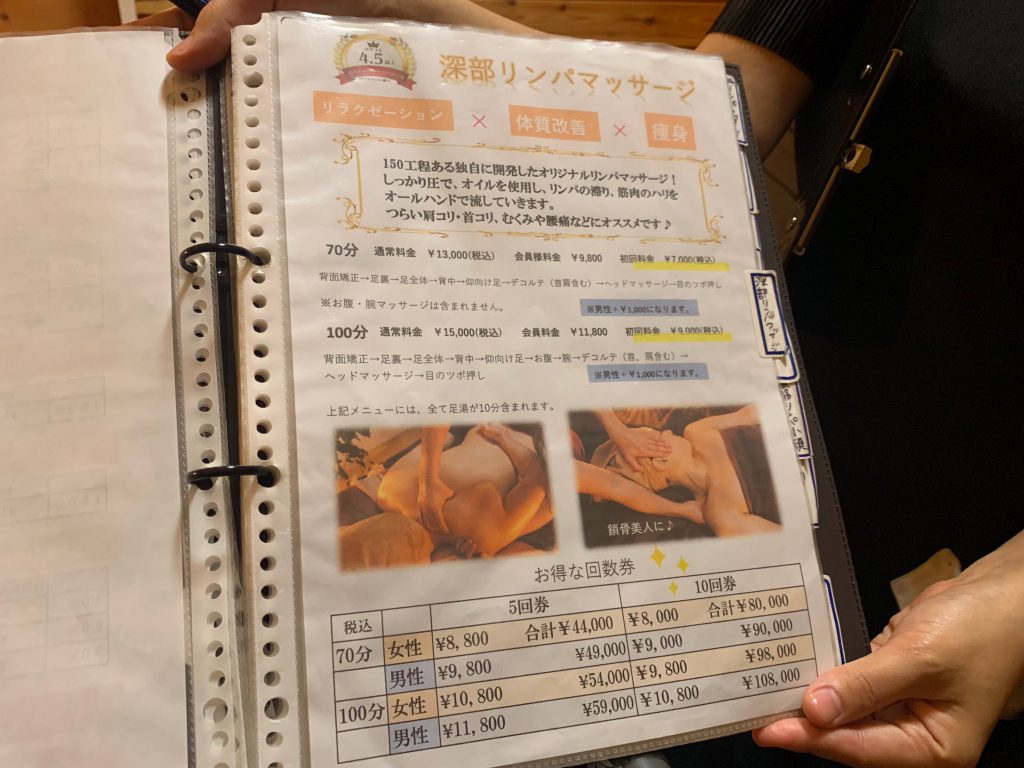 4.5
深部リンパマッサージ
リラクゼーション × 体質改善 × 痩身
150工程ある独自に開発したオリジナルリンパマッサージ！
しっかり圧で、オイルを使用し、リンパの滞り、筋肉のハリを
オールハンドで流していきます。
つらい肩コリ・首コリ、むくみや腰痛などにオススメです♪
70分 通常料金 ￥13,000(税込) 会員様料金 ￥9,800 初回料金 ￥7,000(税込)
背面矯正→足裏→足全体→背中→仰向け足→デコルテ（首肩含む）→ヘッドマッサージ→目のツボ押し
※お腹・腕マッサージは含まれません。 ※男性＋￥1,000になります。
100分 通常料金 ￥15,000(税込) 会員料金 ￥11,800 初回料金 ￥9,000(税込)
背面矯正→足裏→足全体→背中→仰向け足→お腹→腕→デコルテ（首、肩含む）→
ヘッドマッサージ→目のツボ押し ※男性＋￥1,000になります。
上記メニューには、全て足湯が10分含まれます。
鎖骨美人に♪
お得な回数券
税込 5回券 10回券
70分 女性 ¥8,800 合計￥44,000 ¥8,000 合計￥80,000
男性 ¥9,800 ¥49,000 ¥9,000 ¥90,000
100分 女性 ¥10,800 ¥54,000 ¥9,800 ¥98,000
男性 ¥11,800 ¥59,000 ¥10,800 ¥108,000